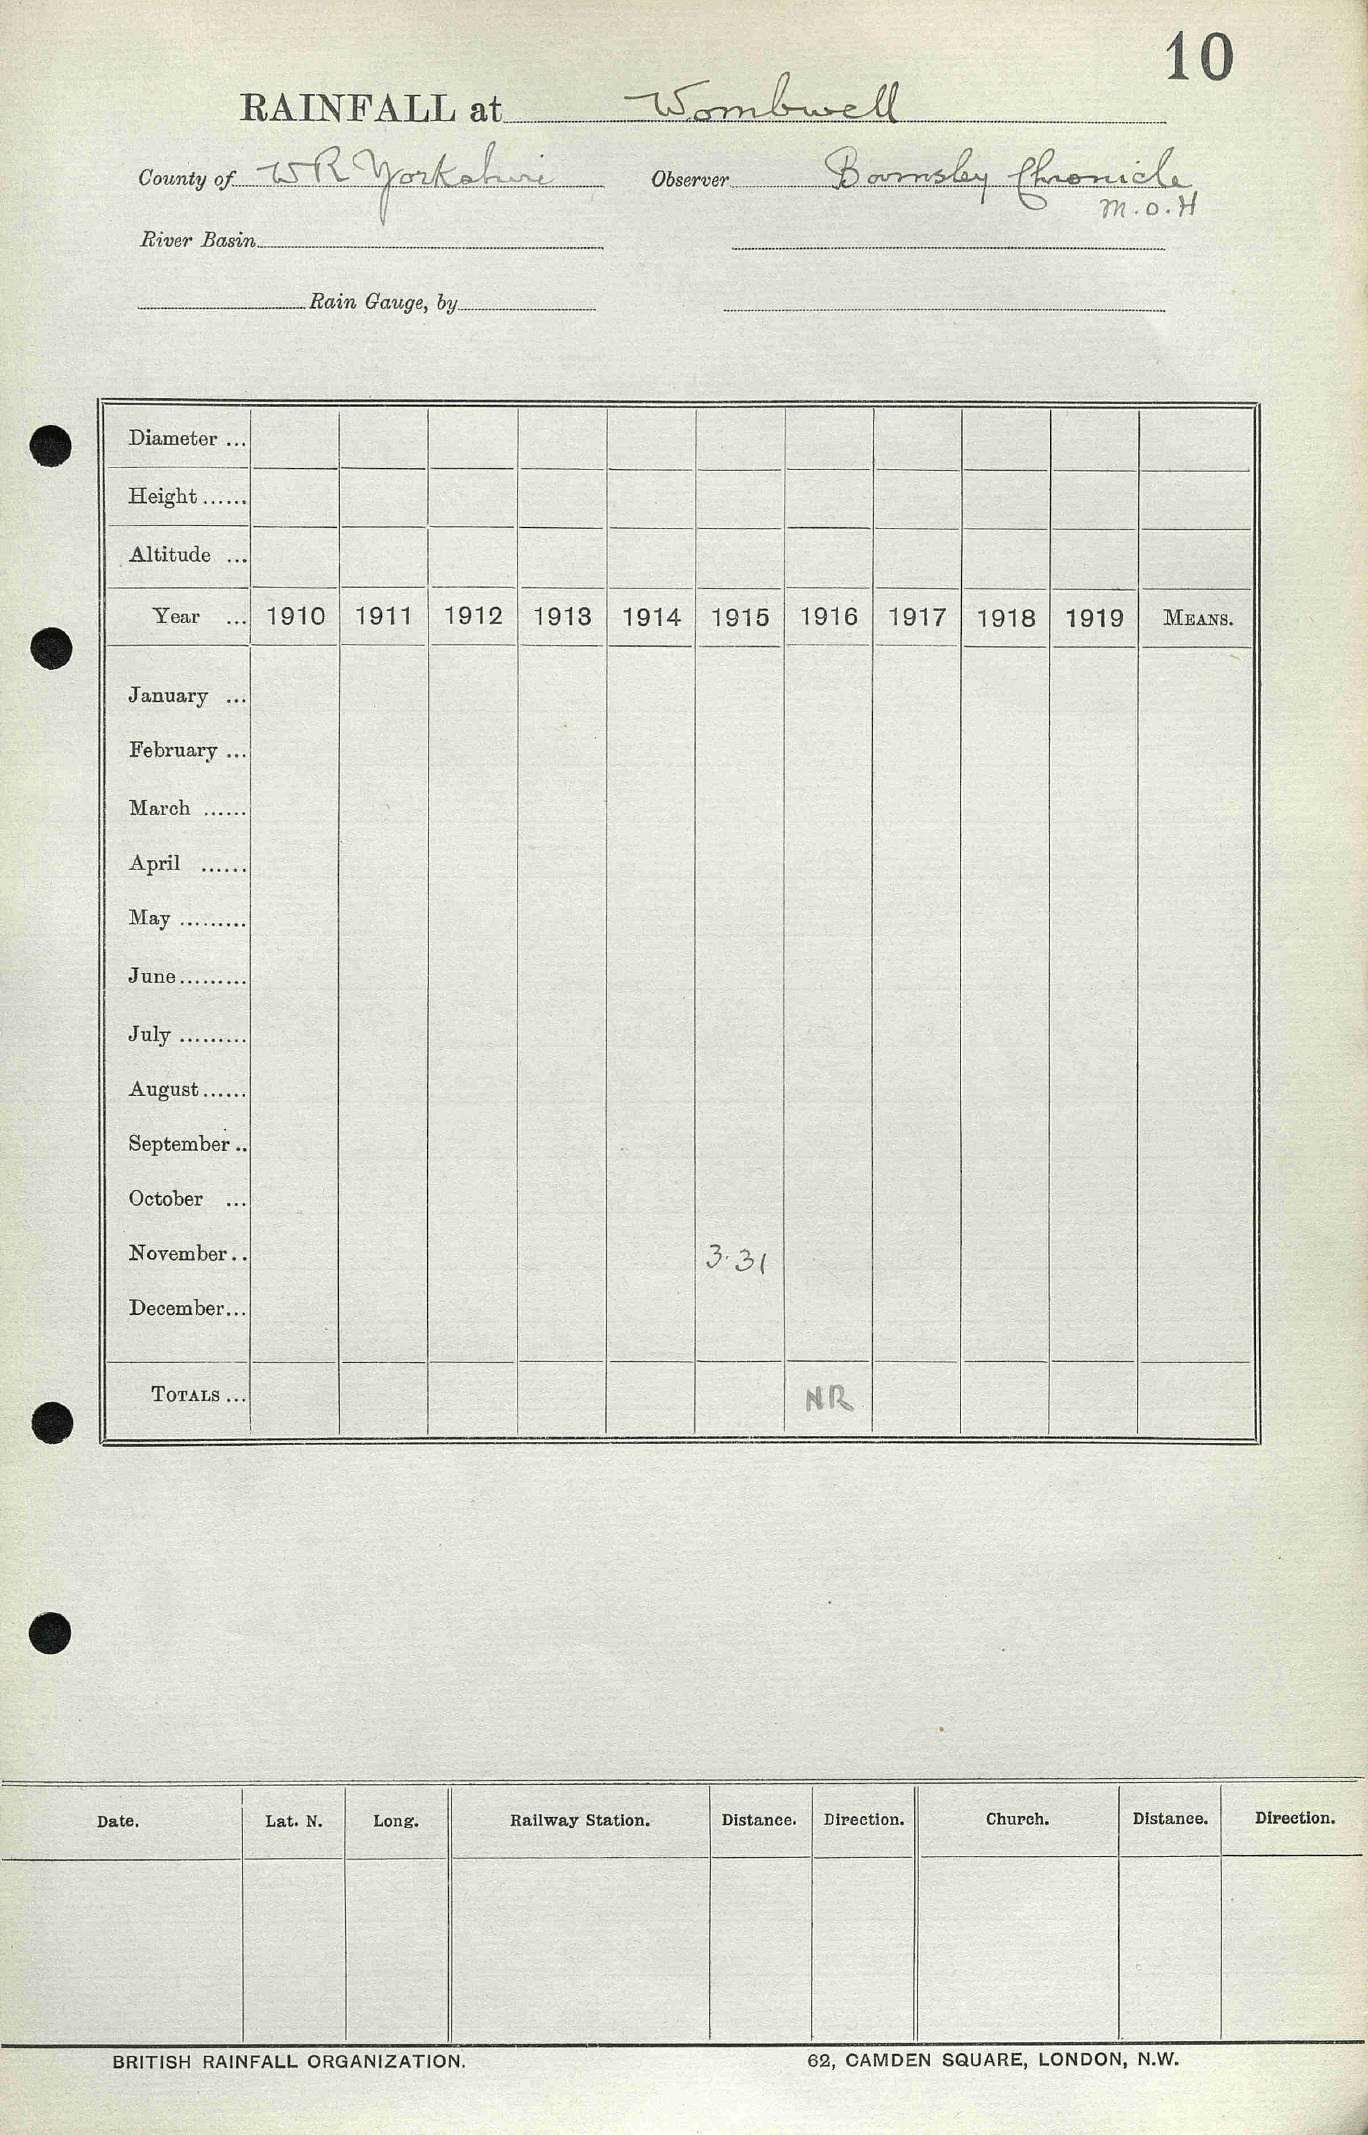 10
RAINFALL at Wombwell
County of W R Yorkshire Observer Barnsley Chronicle
M.O.H
River Basin
Rain Gauge, by
Diameter ...
Height ......
Altitude ...
Year ... 1910 1911 1912 1913 1914 1915 1916 1917 1918 1919 MEANS.
January ...
February ...
March ......
April ......
May .........
June .........
July .........
August ......
September ..
October ...
November .. 3.31
December ...
TOTALS ... NR
Date. Lat. N. Long. Railway Station. Distance. Direction. Church. Distance. Direction.
BRITISH RAINFALL ORGANIZATION. 62, CAMDEN SQUARE, LONDON, N.W.